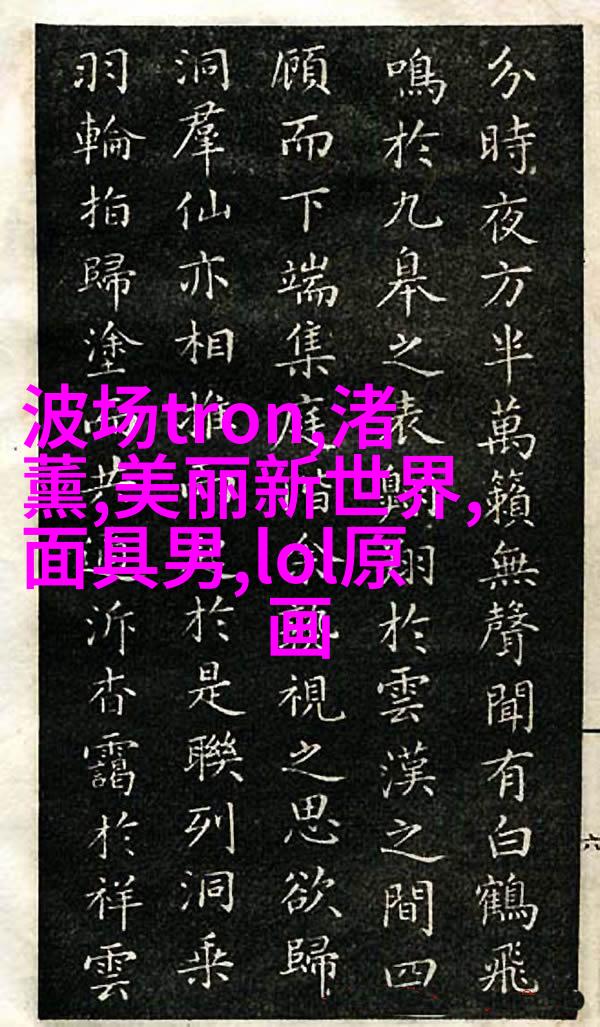 波场tron,渚
薰,美丽新世界,
面具男,lol原
画
分時夜方半萬籟無聲聞有白鶴飛
鳴於九皋之表翔於雲漢之間四
顧而下端集視之思欲歸
洞羣仙亦相推於是聯列洞乘
羽輪拍歸塗共泝杳靄於祥雲
六